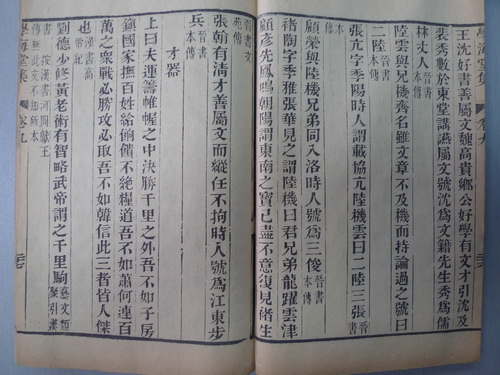 學海堂集
卷九
王沈好書善屬文魏高貴鄉公好學有文才引沈及
裴秀數於東堂講讌屬文號沈為文籍先生秀為儒
林丈人晉書本傳
二陸
陸雲與兄機齊名雖文章不及機而持論過之號曰
二陸晉書本傳
張亢字季陽時人謂載協亢陸機雲曰二陸三張晉書本傳
顧榮與陸機兄弟同入洛時人號為三俊晉書本傳
褚陶字季雅張華見之謂陸機曰君兄弟龍躍雲津
顧彥先鳳鳴朝陽謂東南之寶已盡不意復見褚生
晉書文苑傳
張翰有清才善屬文而縱任不拘時人號為江東步
兵晉書本傳
才器
上曰夫運籌帷幄之中決勝千里之外吾不如子房
鎮國家撫百姓給餉饋不絕糧道吾不如蕭何連百
萬之眾戰必勝攻必取吾不如韓信此三者皆人傑
也漢書高帝紀
劉德少修黃老術有智略武帝謂之千里駒藝文類聚引漢
書按漢書河間獻王傳無此文不知所本
學海堂集
卷九